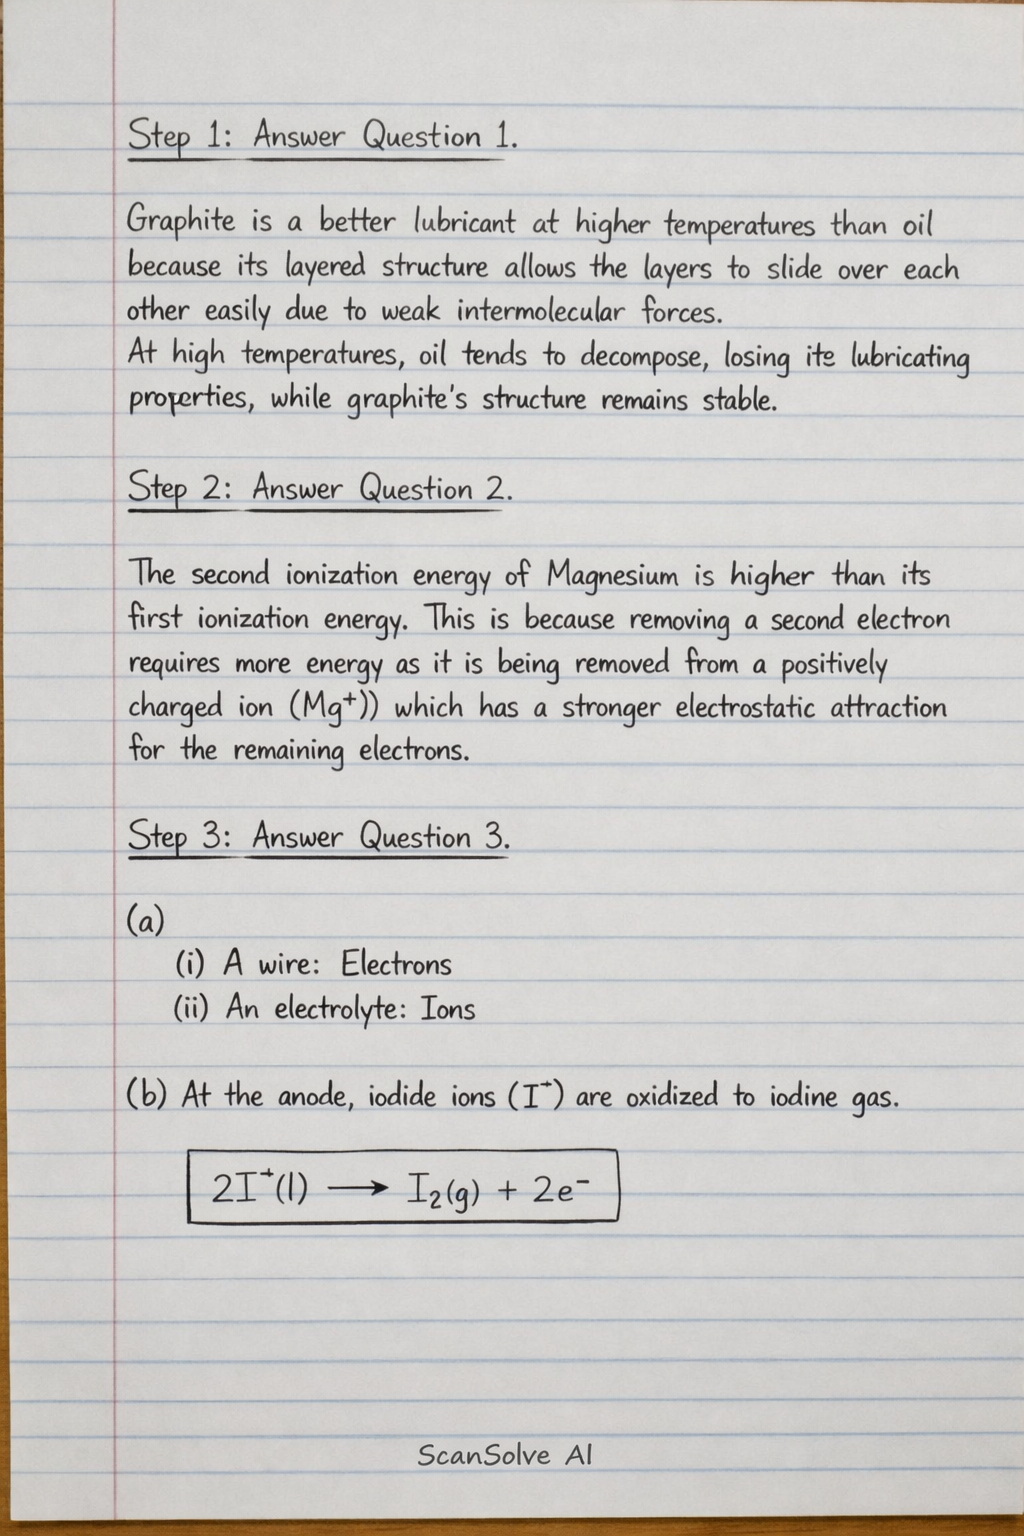 Step 1: Answer Question 1.
Graphite is a better lubricant at higher temperatures than oil
because its layered structure allows the layers to slide over each
other easily due to weak intermolecular forces.
At high temperatures, oil tends to decompose, losing its lubricating
properties, while graphite's structure remains stable.
Step 2: Answer Question 2.
The second ionization energy of Magnesium is higher than its
first ionization energy. This is because removing a second electron
requires more energy as it is being removed from a positively
charged ion (Mg⁺)) which has a stronger electrostatic attraction
for the remaining electrons.
Step 3: Answer Question 3.
(a)
(i) A wire: Electrons
(ii) An electrolyte: Ions
(b) At the anode, iodide ions (I⁺) are oxidized to iodine gas.
2I⁺(l) → I₂(g) + 2e⁻
ScanSolve AI